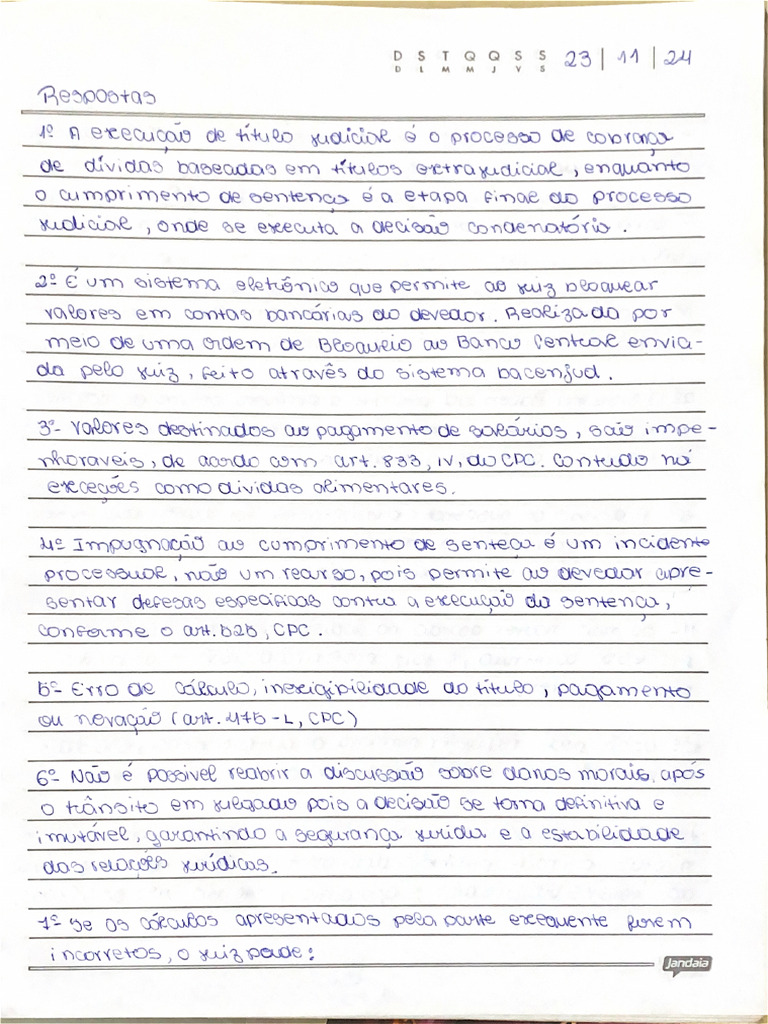 D S T Q Q S S 23 | 11 | 24
D L M M J V S
Respostas
1º A execução de título judicial é o processo de cobrança
de dívidas baseadas em títulos extrajudicial, enquanto
o cumprimento de sentença é a etapa final do processo
judicial, onde se executa a decisão condenatória.
2º É um sistema eletrônico que permite ao juiz bloquear
valores em contas bancárias do devedor. Realizada por
meio de uma ordem de Bloqueio ao Banco Central envia-
da pelo juiz, feito através do sistema bacenjud.
3º- Valores destinados ao pagamento de salários, são impe-
nhoraveis, de acordo com art. 833, IV, do CPC. Contudo há
exceções como dividas alimentares.
4º Impugnação ao cumprimento de senteça é um incidente
processual, não um recurso, pois permite ao devedor apre-
sentar defesas específicas contra a execução da sentença,
conforme o art. 525, CPC.
5º- Erro de cálculo, inexigibilidade do título, pagamento
ou novação (art. 475-L, CPC)
6º- Não é possivel reabrir a discussão sobre danos morais, após
o trânsito em julgado pois a decisão se torna definitiva e
imutável, garantindo a segurança jurida e a estabilidade
das relações jurídicas.
7º- Se os cálculos apresentados pela parte exequente forem
incorretos, o juiz pode:
Jandaia